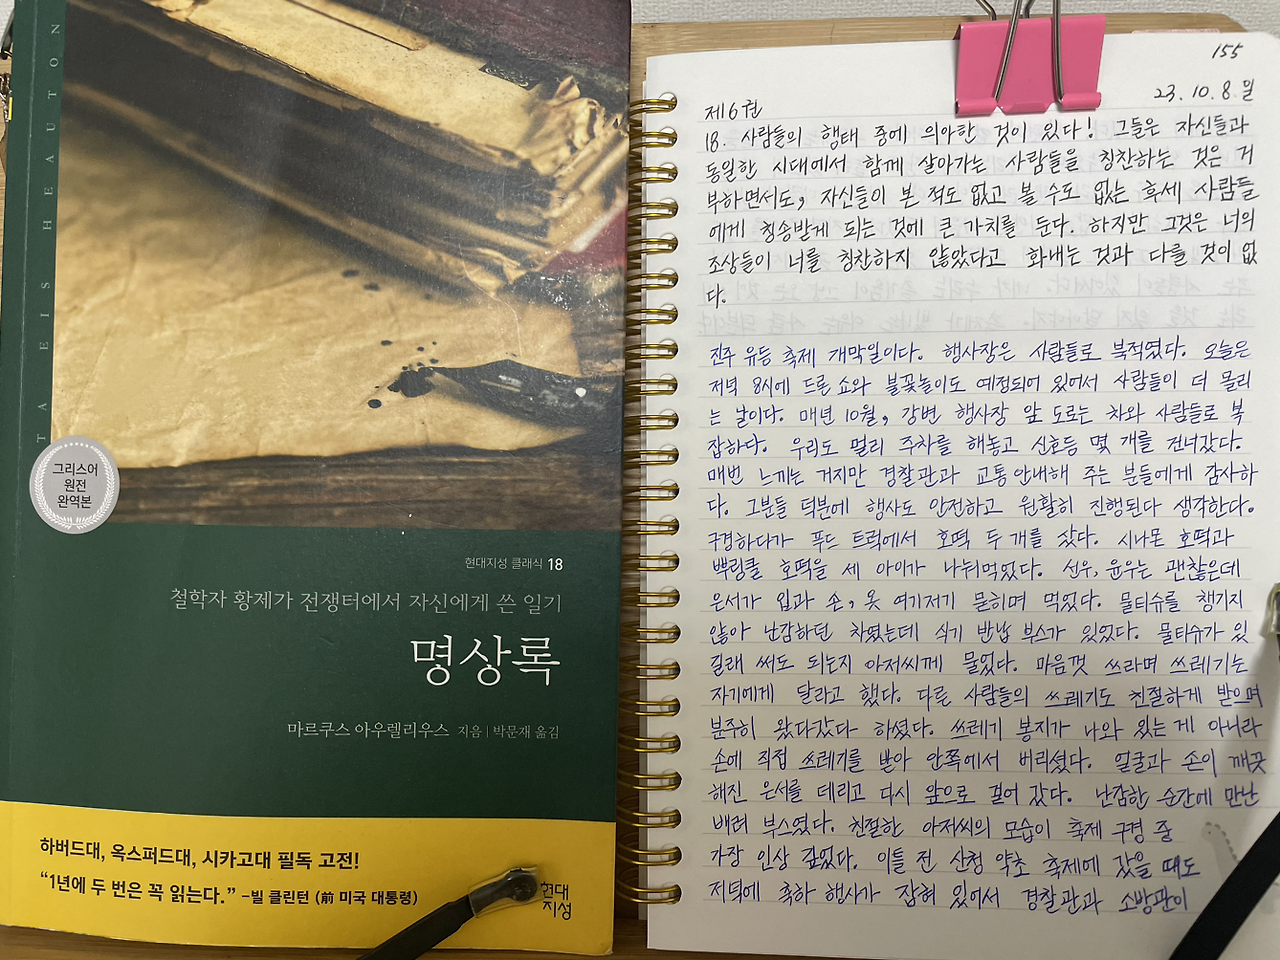 TA EIS HEAUTON
그리스어
원전
완역본
현대지성 클래식 18
철학자 황제가 전쟁터에서 자신에게 쓴 일기
명상록
마르쿠스 아우렐리우스 지음 | 박문재 옮김
하버드대, 옥스퍼드대, 시카고대 필독 고전!
“1년에 두 번은 꼭 읽는다.” -빌 클린턴 (前 미국 대통령)
현대
지성
155
23. 10. 8. 일
제6권
18. 사람들의 행태 중에 의아한 것이 있다! 그들은 자신들과
동일한 시대에서 함께 살아가는 사람들을 칭찬하는 것은 거
부하면서도, 자신들이 본 적도 없고 볼 수도 없는 후세 사람들
에게 칭송받게 되는 것에 큰 가치를 둔다. 하지만 그것은 너의
조상들이 너를 칭찬하지 않았다고 화내는 것과 다를 것이 없
다.
진주 유등 축제 개막일이다. 행사장은 사람들로 북적였다. 오늘은
저녁 8시에 드론 쇼와 불꽃놀이도 예정되어 있어서 사람들이 더 몰리
는 날이다. 매년 10월, 강변 행사장 앞 도로는 차와 사람들로 복
잡하다. 우리도 멀리 주차를 해놓고 신호등 몇 개를 건너갔다.
매번 느끼는 거지만 경찰관과 교통안내해 주는 분들에게 감사하
다. 그분들 덕분에 행사도 안전하고 원활히 진행된다 생각한다.
구경하다가 푸드 트럭에서 호떡 두 개를 샀다. 시나몬 호떡과
뿌링클 호떡을 세 아이가 나눠먹었다. 선우, 윤우는 괜찮은데
은서가 입과 손, 옷 여기저기 묻히며 먹었다. 물티슈를 챙기지
않아 난감하던 차였는데 식기 반납 부스가 있었다. 물티슈가 있
길래 써도 되는지 아저씨께 물었다. 마음껏 쓰라며 쓰레기는
자기에게 달라고 했다. 다른 사람들의 쓰레기도 친절하게 받으며
분주히 왔다갔다 하셨다. 쓰레기 봉지가 나와 있는 게 아니라
손에 직접 쓰레기를 받아 안쪽에서 버리셨다. 얼굴과 손이 깨끗
해진 은서를 데리고 다시 앞으로 걸어 갔다. 난감한 순간에 만난
배려 부스였다. 친절한 아저씨의 모습이 축제 구경 중
가장 인상 깊었다. 이틀 전 산청 약초 축제에 갔을 때도
저녁에 축하 행사가 잡혀 있어서 경찰관과 소방관이